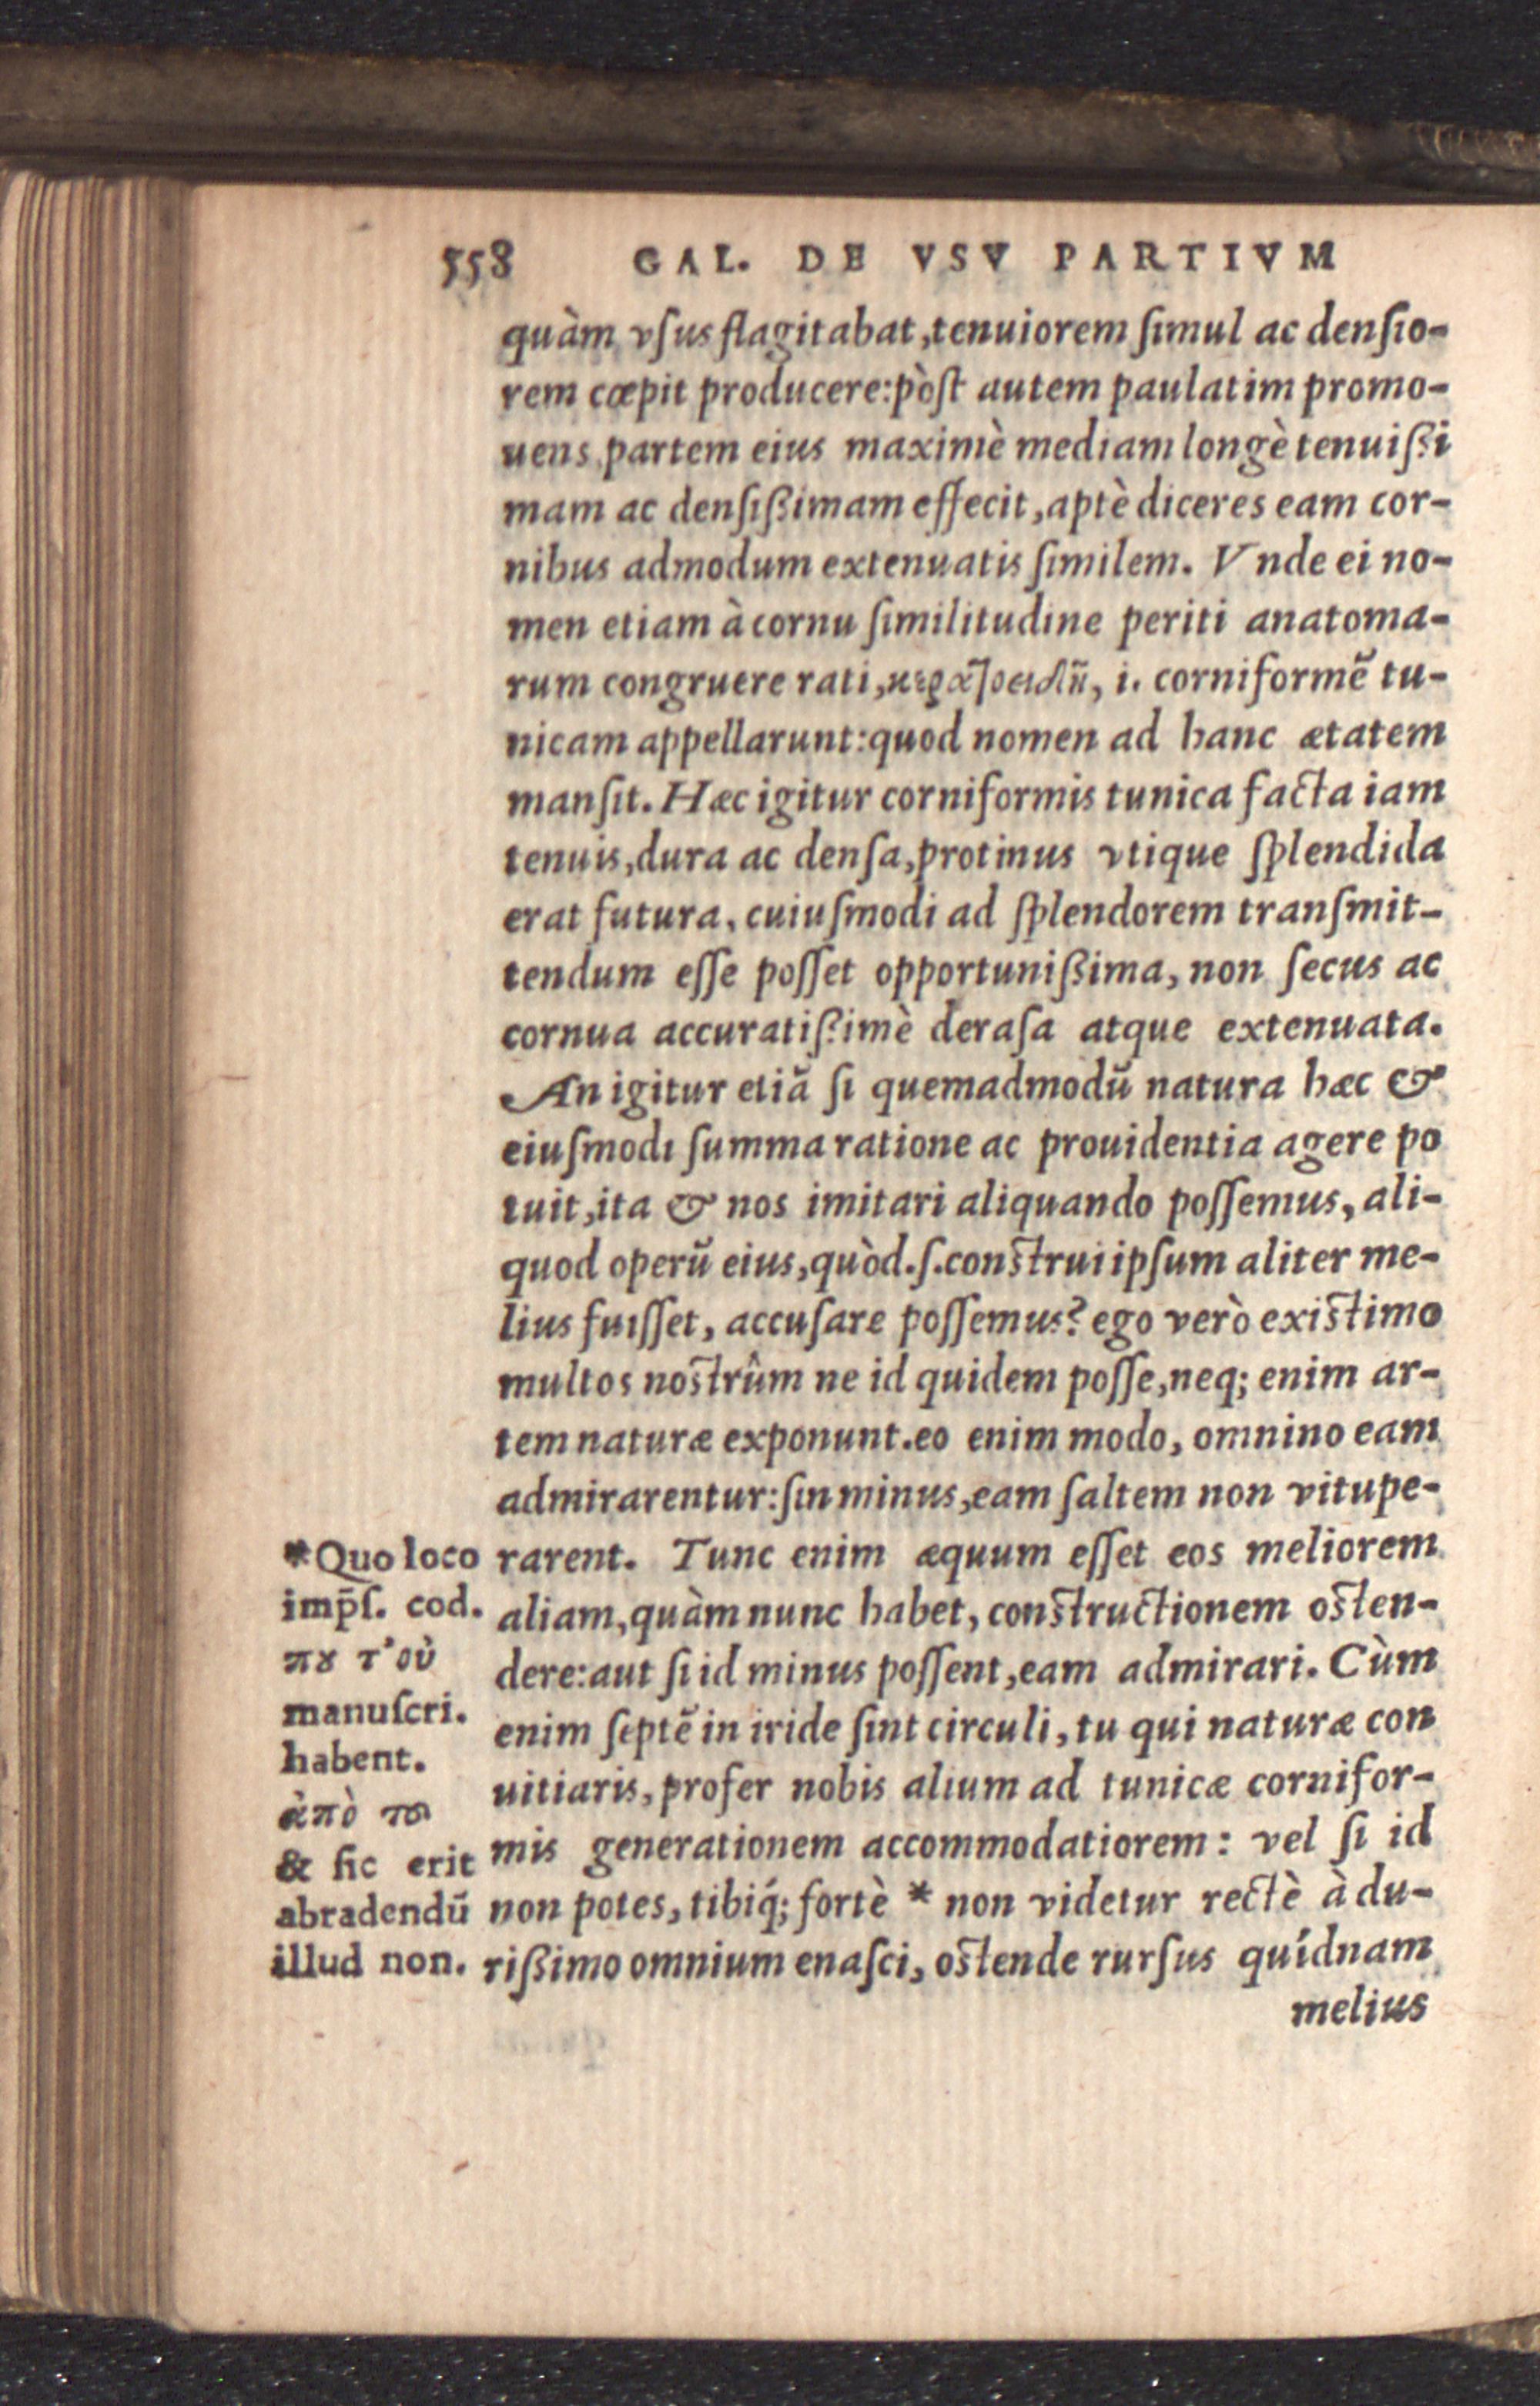 558 GAL. DE VSV PARTIVM
quàm vſus flagitabat, tenuiorem ſimul ac denſio-
rem cœpit producere: pòſt autem paulatim promo-
uens partem eius maximè mediam longè tenuißi
mam ac denſißimam effecit, aptè diceres eam cor-
nibus admodum extenuatis ſimilem. Vnde ei no-
men etiam à cornu ſimilitudine periti anatoma-
rum congruere rati, κερατοειδῆ, i. corniformẽ tu-
nicam appellarunt: quod nomen ad hanc ætatem
manſit. Hæc igitur corniformis tunica facta iam
tenuis, dura ac denſa, protinus vtique ſplendida
erat futura, cuiuſmodi ad ſplendorem tranſmit-
tendum eſſe poſſet opportunißima, non ſecus ac
cornua accuratißimè deraſa atque extenuata.
An igitur etiã ſi quemadmodũ natura hæc &
eiuſmodi ſumma ratione ac prouidentia agere po
tuit, ita & nos imitari aliquando poſſemus, ali-
quod operũ eius, quòd. ſ. conſtrui ipſum aliter me-
lius fuiſſet, accuſare poſſemus? ego verò exiſtimo
multos noſtrûm ne id quidem poſſe, neq; enim ar-
tem naturæ exponunt. eo enim modo, omnino eam
admirarentur: ſin minus, eam ſaltem non vitupe-
rarent. Tunc enim æquum eſſet eos meliorem
aliam, quàm nunc habet, conſtructionem oſten-
dere: aut ſi id minus poſſent, eam admirari. Cùm
enim ſeptẽ in iride ſint circuli, tu qui naturæ con
uitiaris, profer nobis alium ad tunicæ cornifor-
mis generationem accommodatiorem: vel ſi id
non potes, tibiq́; fortè * non videtur rectè à du-
rißimo omnium enaſci, oſtende rurſus quídnam
melius
*Quo loco
imp̃ſ. cod.
πȣ τ’ οὐ
manuſcri.
habent.
ἀπὸ τοῦ
& ſic erit
abradendũ
illud non.